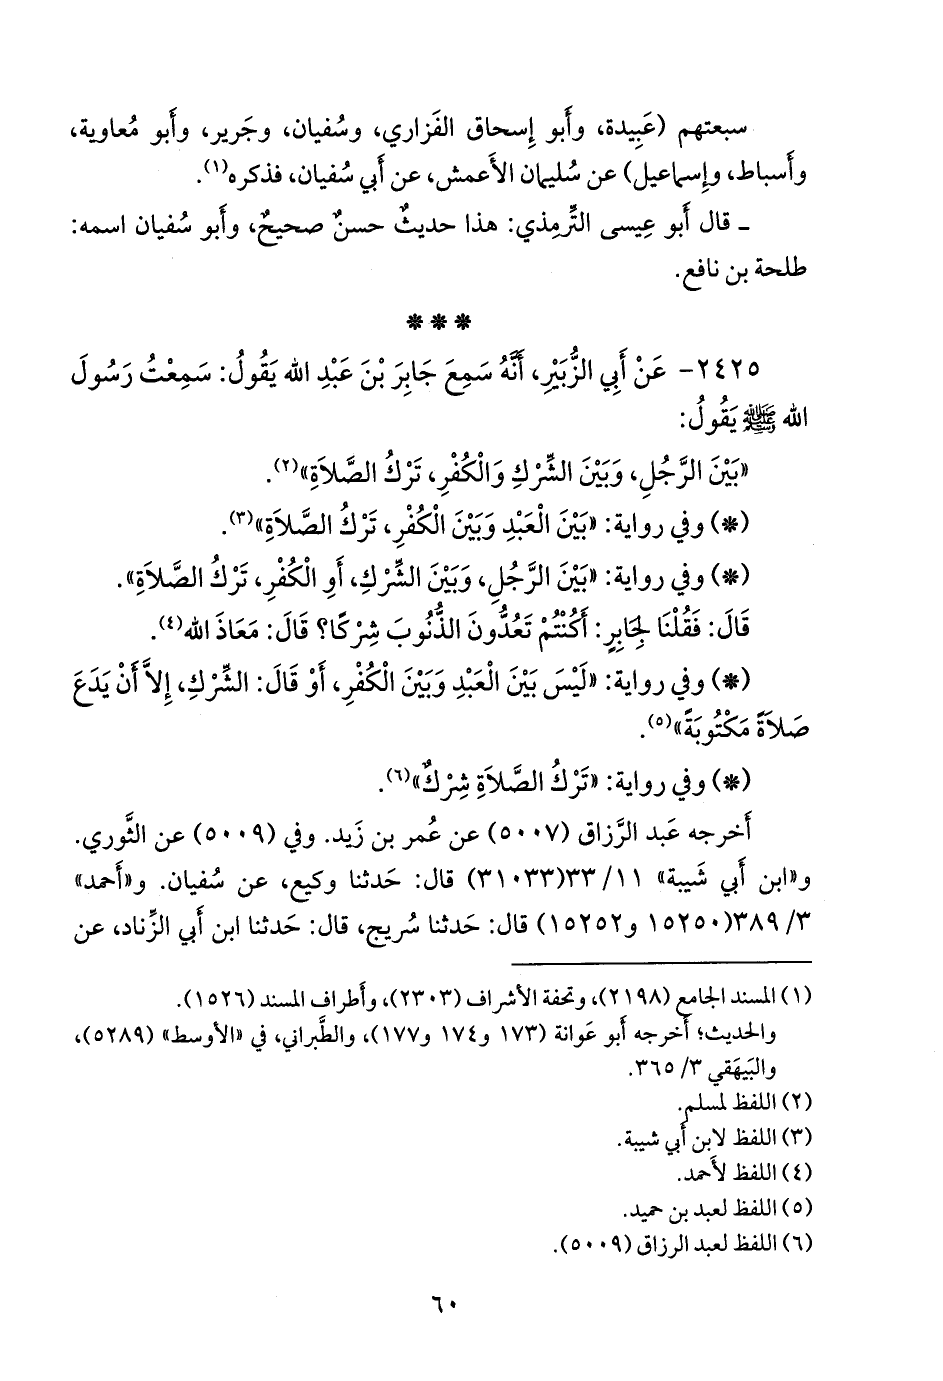 سبعتهم (عَبِيدة، وأَبو إِسحاق الفَزاري، وسُفيان، وجَرير، وأَبو مُعاوية،
وأَسباط، وإِسماعيل) عن سُليمان الأَعمش، عن أَبي سُفيان، فذكره(١).
ـ قال أَبو عِيسى التِّرمِذي: هذا حديثٌ حسنٌ صحيحٌ، وأَبو سُفيان اسمه:
طلحة بن نافع.
* * *
٢٤٢٥- عَنْ أَبِي الزُّبَيْرِ، أَنَّهُ سَمِعَ جَابِرَ بْنَ عَبْدِ الله يَقُولُ: سَمِعْتُ رَسُولَ
الله ﷺ يَقُولُ:
«بَيْنَ الرَّجُلِ، وَبَيْنَ الشِّرْكِ وَالْكُفْرِ، تَرْكُ الصَّلاَةِ»(٢).
(*) وفي رواية: «بَيْنَ الْعَبْدِ وَبَيْنَ الْكُفْرِ، تَرْكُ الصَّلاَةِ»(٣).
(*) وفي رواية: «بَيْنَ الرَّجُلِ، وَبَيْنَ الشِّرْكِ، أَوِ الْكُفْرِ، تَرْكُ الصَّلاَةِ».
قَالَ: فَقُلْنَا لِجَابِرٍ: أَكُنْتُمْ تَعُدُّونَ الذُّنُوبَ شِرْكًا؟ قَالَ: مَعَاذَ الله(٤).
(*) وفي رواية: «لَيْسَ بَيْنَ الْعَبْدِ وَبَيْنَ الْكُفْرِ، أَوْ قَالَ: الشِّرْكِ، إِلاَّ أَنْ يَدَعَ
صَلاَةً مَكْتُوبَةً»(٥).
(*) وفي رواية: «تَرْكُ الصَّلاَةِ شِرْكٌ»(٦).
أَخرجه عَبد الرَّزاق (٥٠٠٧) عن عُمر بن زَيد. وفي (٥٠٠٩) عن الثَّوري.
و«ابن أَبي شَيبة» ١١/ ٣٣(٣١٠٣٣) قال: حَدثنا وكيع، عن سُفيان. و«أَحمد»
٣/ ٣٨٩(١٥٢٥٠ و١٥٢٥٢) قال: حَدثنا سُريج، قال: حَدثنا ابن أَبي الزِّناد، عن
(١) المسند الجامع (٢١٩٨)، وتحفة الأشراف (٢٣٠٣)، وأطراف المسند (١٥٢٦).
والحديث؛ أَخرجه أَبو عَوانة (١٧٣ و١٧٤ و١٧٧)، والطَّبراني، في «الأوسط» (٥٢٨٩)،
والبَيهَقي ٣/ ٣٦٥.
(٢) اللفظ لمسلم.
(٣) اللفظ لابن أَبي شيبة.
(٤) اللفظ لأَحمد.
(٥) اللفظ لعبد بن حميد.
(٦) اللفظ لعبد الرزاق (٥٠٠٩).
٦٠